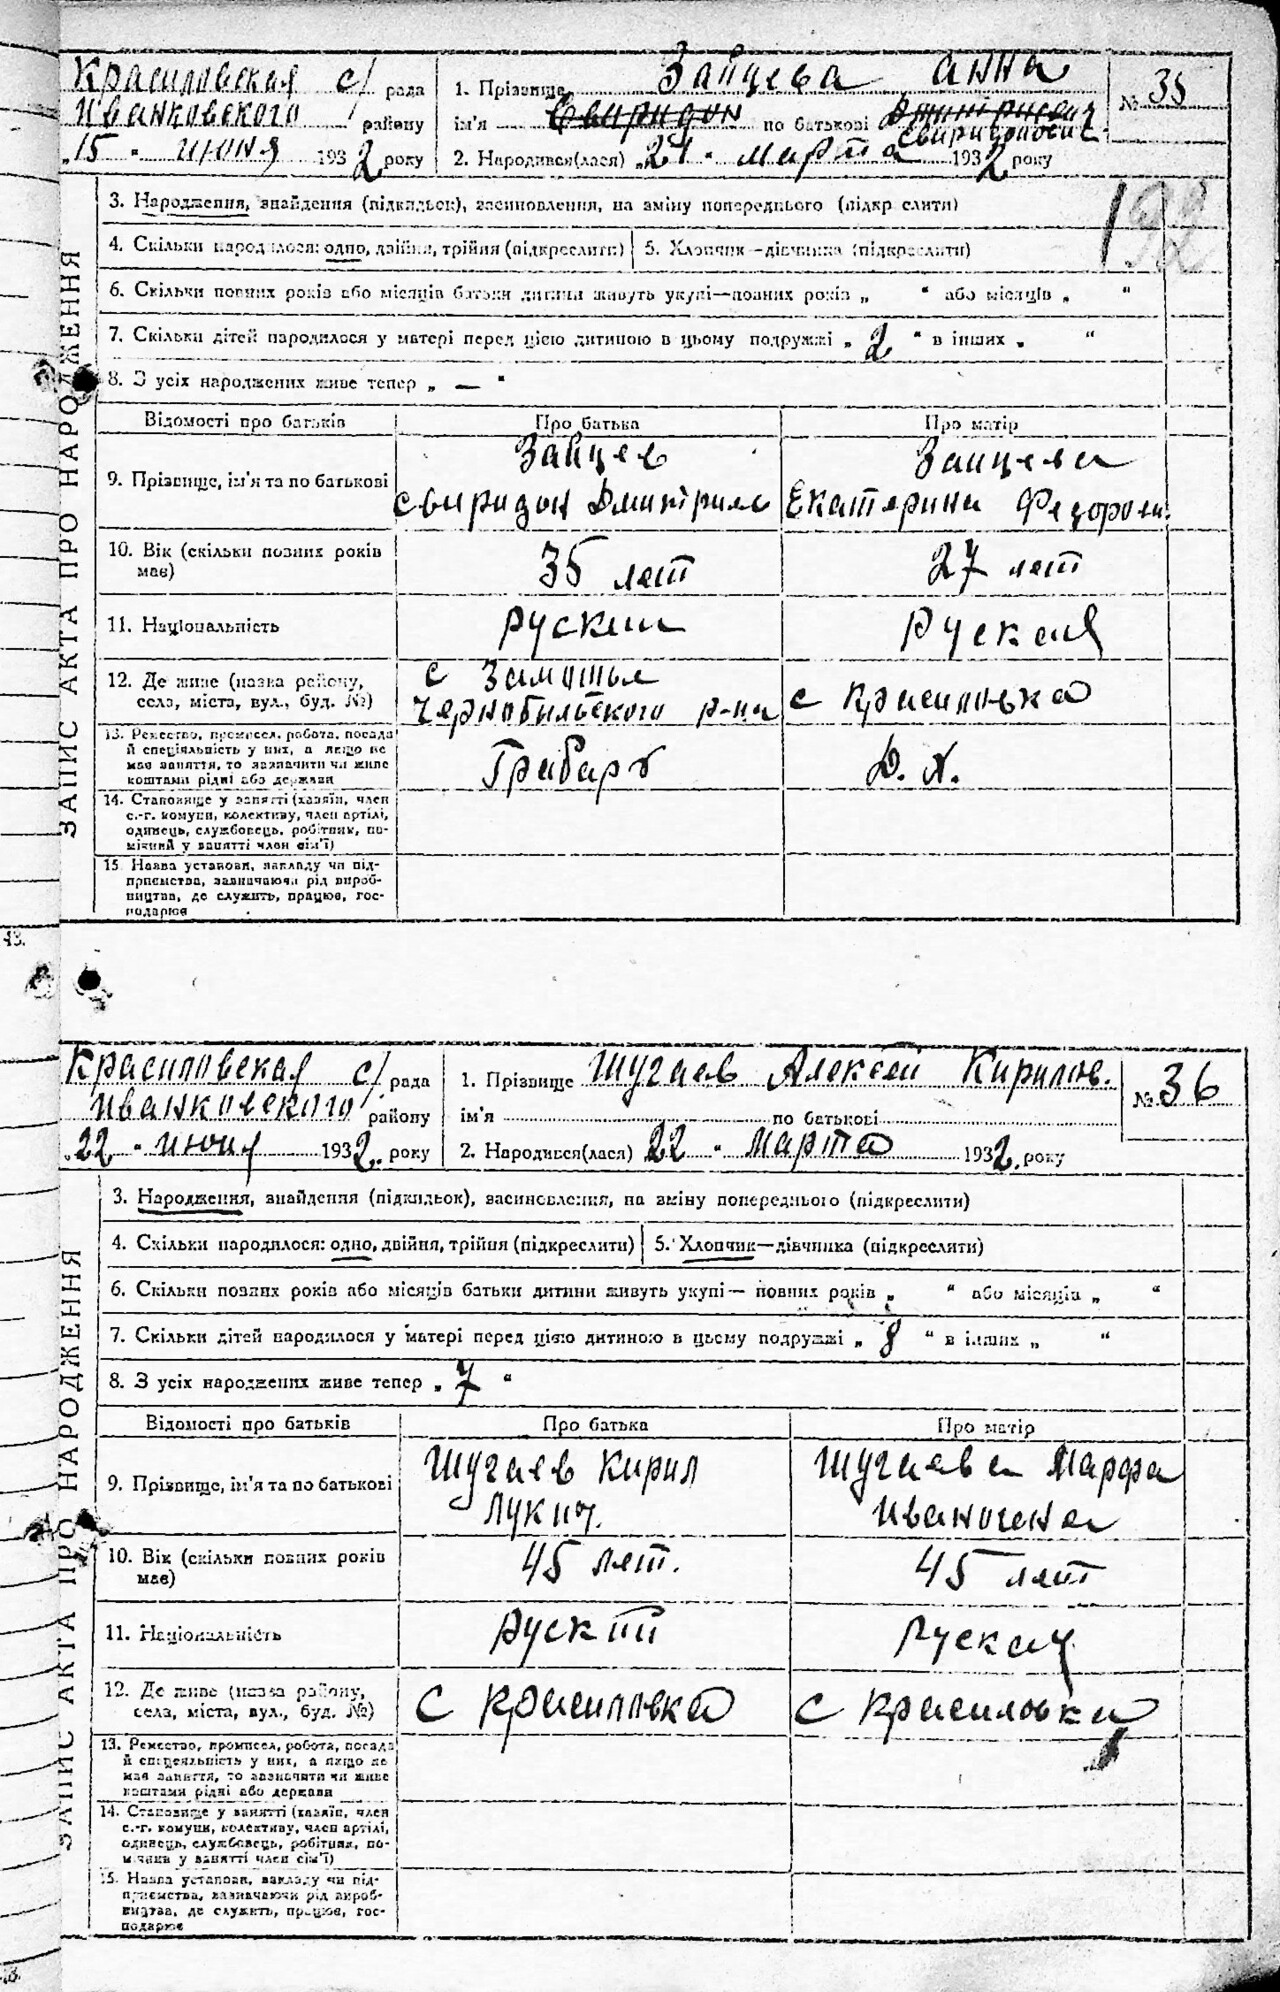 Красиловская с/ рада
Иванковского району
„15 " июня 1932 року
1. Прізвище Зайцева Анна
ім'я Свиридон по батькові Дмитриевич
Свиридонович.
2. Народився(лася) „24 " марта 1932 року
№ 35
192
3. Народження, знайдення (підкидьок), засиновлення, на зміну попереднього (підкреслити)
4. Скільки народилося: одно, двійня, трійня (підкреслити) 5. Хлопчик—дівчинка (підкреслити)
6. Скільки повних років або місяців батьки дитини живуть укупі—повних років „ " або місяців „ "
7. Скільки дітей народилося у матері перед цією дитиною в цьому подружжі „ 2 " в інших „ "
8. З усіх народжених живе тепер „ — "
ЗАПИС АКТА ПРО НАРОДЖЕННЯ
Відомості про батьків Про батька Про матір
9. Прізвище, ім'я та по батькові
Зайцев
Свиридон Дмитриев
Зайцева
Екатерина Федоровн.
10. Вік (скільки повних років
має)
35 лет
27 лет
11. Національність
Руский
Руская
12. Де живе (назва району,
села, міста, вул., буд. №)
с Замошья
Чернобыльского р-на
с Красиловка
13. Ремество, промисел, робота, посада
й спеціяльність у них, а якщо не
має заняття, то зазначити чи живе
коштами рідні або держави
Грабарь
Д. Х.
14. Становище у занятті (хазяїн, член
с.-г. комуни, колективу, член артілі,
одинець, службовець, робітник, по-
мічний у занятті член сім'ї)
15. Назва установи, закладу чи під-
приємства, зазначаючи рід вироб-
ництва, де служить, працює, гос-
подарює
43.
Красиловская с/ рада
Иванковского району
„22 " июня 1932. року
1. Прізвище Шугаев Алексей Кирилов.
ім'я по батькові
2. Народився(лася) 22 " марта 1932. року
№ 36
3. Народження, знайдення (підкидьок), засиновлення, на зміну попереднього (підкреслити)
4. Скільки народилося: одно, двійня, трійня (підкреслити) 5. Хлопчик—дівчинка (підкреслити)
6. Скільки повних років або місяців батьки дитини живуть укупі— повних років „ " або місяців „ "
7. Скільки дітей народилося у матері перед цією дитиною в цьому подружжі „ 8 " в інших „ "
8. З усіх народжених живе тепер „ 7 "
ЗАПИС АКТА ПРО НАРОДЖЕННЯ
Відомості про батьків Про батька Про матір
9. Прізвище, ім'я та по батькові
Шугаев Кирил
Лукич.
Шугаева Марфа
Ивановна
10. Вік (скільки повних років
має)
45 лет.
45 лет
11. Національність
Руский
Руская
12. Де живе (назва району,
села, міста, вул., буд. №)
с Красиловка
с Красиловка
13. Ремество, промисел, робота, посада
й спеціяльність у них, а якщо не
має заняття, то зазначити чи живе
коштами рідні або держави
14. Становище у занятті (хазяїн, член
с.-г. комуни, колективу, член артілі,
одинець, службовець, робітник, по-
мічний у занятті член сім'ї)
15. Назва установи, закладу чи під-
приємства, зазначаючи рід вироб-
ництва, де служить, працює, гос-
подарює